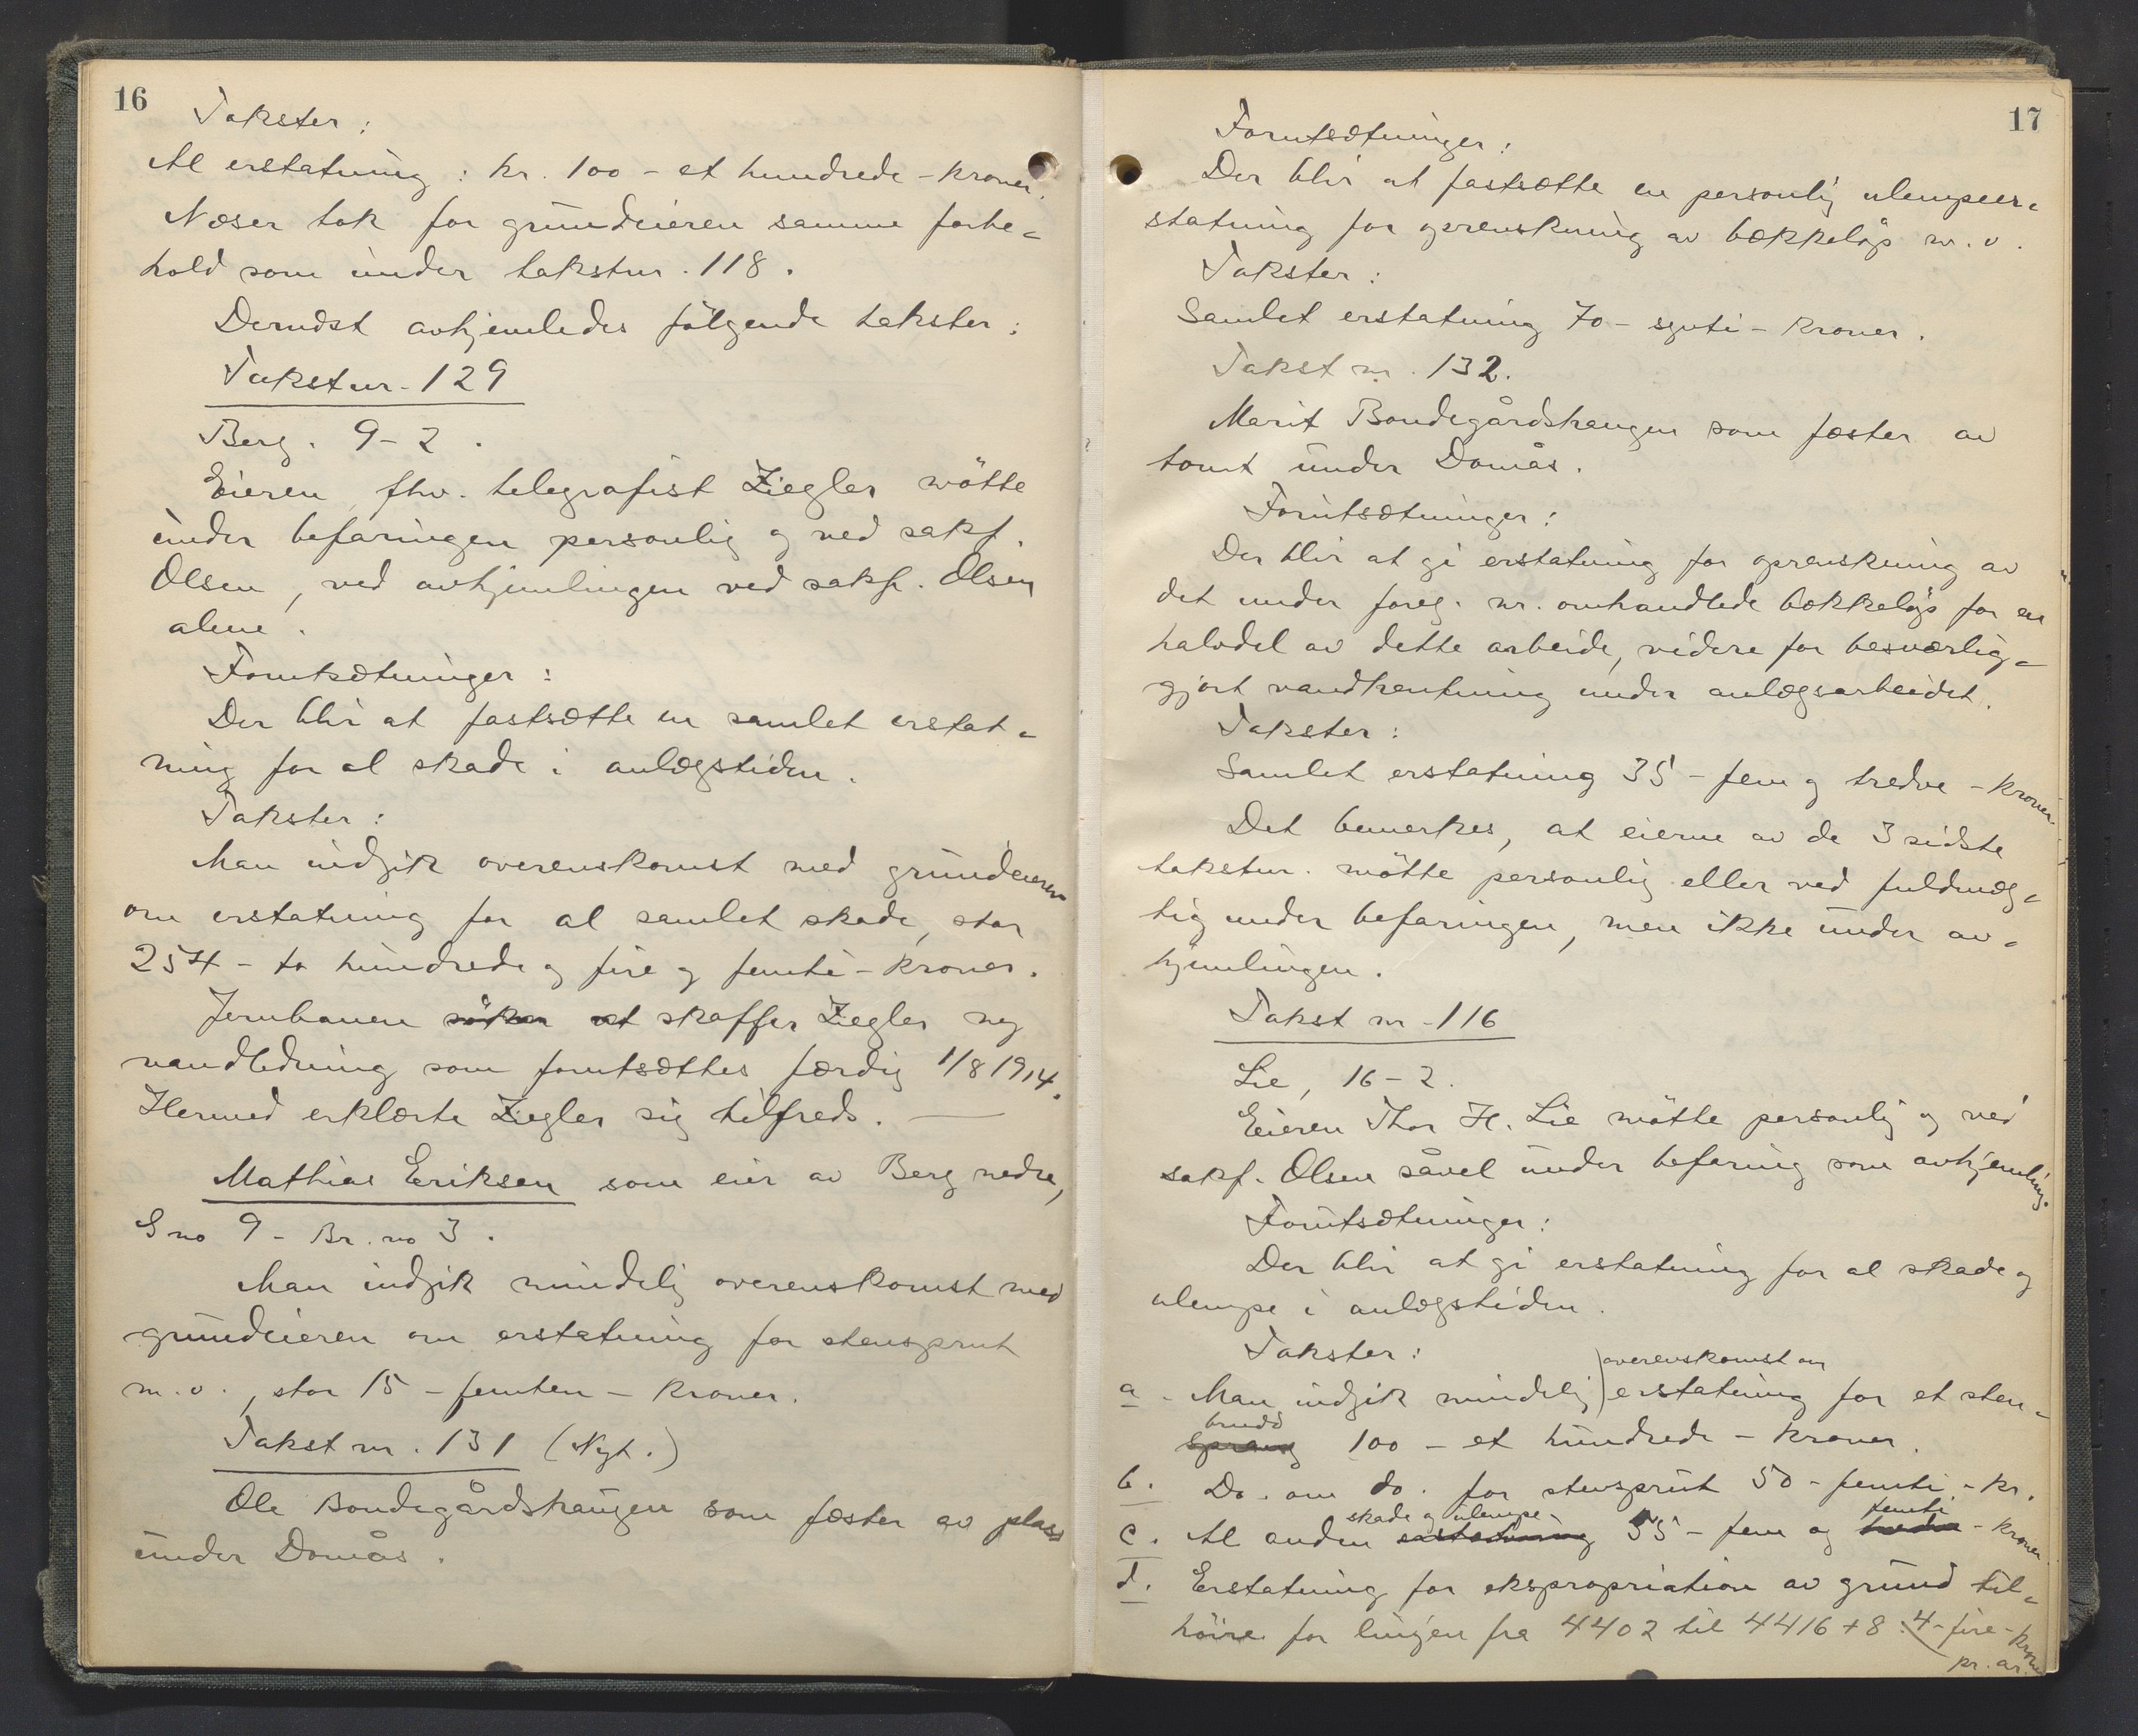 16
Takster:
Al erstatning: kr. 100 - et hundrede - kroner.
Næser tok for grundeieren samme forbe=
hold som under takstnr. 118.
Dernæst avhjemledes følgende takster:
Takstnr. 129
Berg. 9-2.
Eieren, fhv. telegrafist Ziegler møtte
under befaringen personlig og ved sakf.
Olsen, ved avhjemlingen ved sakf. Olsen
alene.
Forutsætninger:
Der blir at fastsætte en samlet erstat=
ning for al skade i anlægstiden.
Takster:
Man indgik overenskomst med grundeieren
om erstatning for al samlet skade, stor
254 - to hundrede og fire og femti - kroner.
Jernbanen søker at skaffer Ziegler ny
vandledning som forutsættes færdig 1/8 1914.
Hermed erklærte Ziegler sig tilfreds. —
Mathias Eriksen som eier av Berg nedre,
G no 9 - Br. no 3.
Man indgik mindelig overenskomst med
grundeieren om erstatning for stensprut
m.v., stor 15 - femten - kroner.
Takst nr. 131 (Nyt.)
Ole Bondegårdshaugen som fæster av plass
under Domås.
17
Forutsætninger:
Der blir at fastsætte en personlig ulempeer=
statning for oprenskning av bækkeløp m.v.
Takster:
Samlet erstatning 70 - sytti - kroner.
Takst nr. 132.
Marit Bondegårdshaugen som fæster av
tomt under Domås.
Forutsætninger:
Der blir at gi erstatning for oprenskning av
det under foreg. nr. omhandlede bækkeløp for en
halvdel av dette arbeide, videre for besværlig=
gjort vandhentning under anlægsarbeidet.
Takster:
Samlet erstatning 35 - fem og tredve - kroner.
Det bemerkes, at eierne av de 3 sidste
takstnr. møtte personlig eller ved fuldmæg=
tig under befaringen, men ikke under av=
hjemlingen.
Takst nr. 116
Lie, 16-2.
Eieren Thor H. Lie møtte personlig og ved
sakf. Olsen såvel under befaring som avhjemling.
Forutsætninger:
Der blir at gi erstatning for al skade og
ulempe i anlægstiden.
Takster:
overenskomst om
a. Man indgik mindelig) erstatning for et sten=
brudd
sprang 100 - et hundrede - kroner.
b. Do. om do. for stensprut 50 - femti - kr.
skade og ulempe femti
c. Al anden erstatning 55 - fem og tredve - kroner.
d. Erstatning for ekspropriation av grund til=
høire for linjen fra 4402 til 4416+8: 4 - fire - kroner
pr. ar.